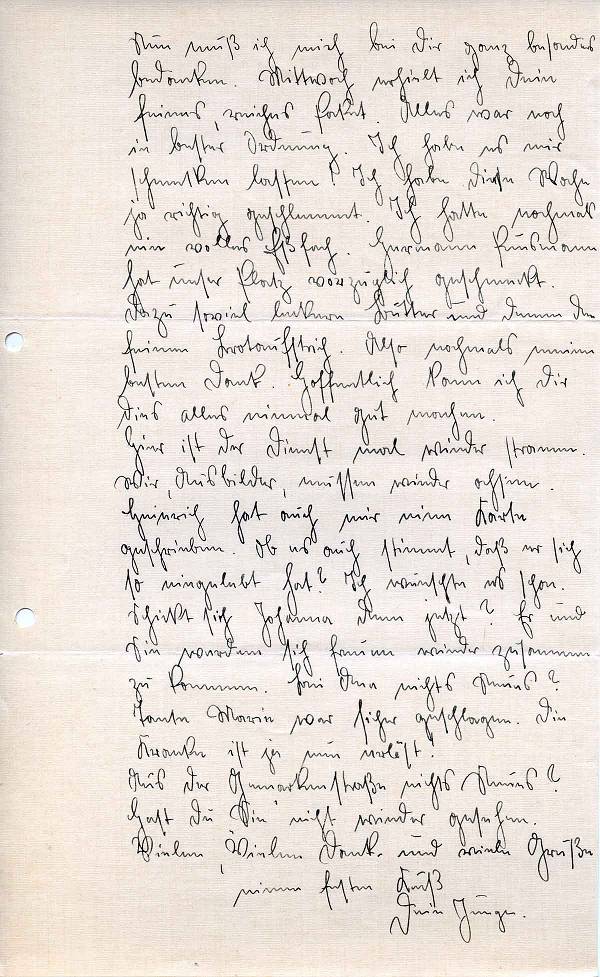 Nun muß ich mich bei Dir ganz besonders
bedanken. Mittwoch erhielt ich Dein
feines, reiches Paket. Alles war noch
in bester Ordnung. Ich habe es mir
schmecken lassen! Ich habe diese Woche
ja richtig geschlemmt. Ich hatte nochmal
ein volles Eßfach. Hermann
hat unser Platz vorzüglich geschmeckt.
Dazu soviel leckere Butter und dann den
feinen Brotaufstrich. Also nochmals meinen
besten Dank. Hoffentlich kann ich Dir
dies alles einmal gut machen.
Hier ist der Dienst mal wieder stramm.
Wir, Ausbilder, müssen wieder ochsen.
Heinrich hat auch mir eine Karte
geschrieben. Ob es auch stimmt, daß er sich
so eingelebt hat? Ich wünschte es schon.
Schickt sich Johanna denn jetzt? Er und
Sie werden sich freuen wieder zusammen
zu kommen. Bei nichts Neues?
Tante Marie war sicher geschlagen. Die
Kranke ist ja nun erlöst!
Aus der nichts Neues?
Hast du "Sie" nicht wieder gesehen.
Vielen, Vielen Dank und viele Grüße
einen festen Kuß
Dein Junge.